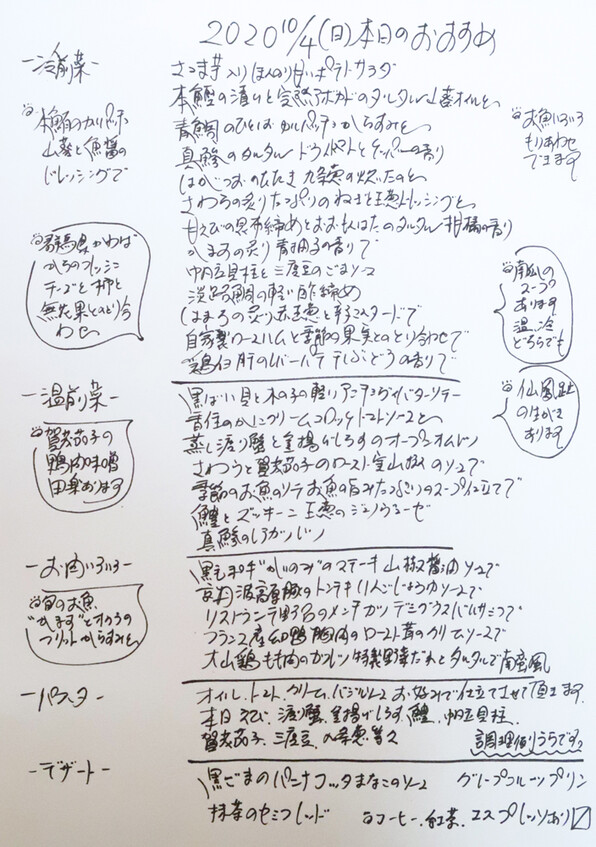 2020 10/4(日)本日のおすすめ
-冷前菜-
さつま芋入りほんのり甘いポテトサラダ
本鰹の漬けと完熟アボカドのタルタル山葵オイルと
青鯛のひとはだカルパッチョからすみと
真鯵のタルタル ドライトマトとケッパーの香り
はがつおのたたき 九条葱の炊いたのと
さわらの炙りたっぷりのねぎと玉葱ドレッシングと
甘えびの昆布締めとおおもんはたのタルタル 柑橘の香り
かますの炙り 青柚子の香りで
帆立貝柱と三度豆のごまソース
淡路鯛の軽い酢締め
はまちの炙り 赤玉葱と辛子マスタードで
自家製ロースハムと季節の果実とのとり合わせで
鶏白肝のレバーパテ 干しぶどうの香りで
本鮪のカルパッチョ
山葵と魚醤の
ドレッシングで
お魚いろいろ
もりあわせ
できます
群馬県かわば
からのフレッシュ
チーズを柿と
無花果ととり合
わせて
南瓜の
スープ
あります
温、冷
どちらでも
仙鳳趾
のはがき
あります
-温前菜-
黒ばい貝と木の子の軽いアンチョヴィバターソテー
香住のかにクリームコロッケトマトソースと
蒸し渡り蟹と釜揚げしらすのオープンオムレツ
さわらと賀茂茄子のロースト 実山椒のソースで
季節のお魚のソテー お魚の旨みたっぷりのスープ仕立てで
鱧とズッキーニ 玉葱のジェノヴェーゼ
真鯵のレアカツレツ
賀茂茄子の
鴨肉味噌
田楽あります
-お肉いろいろ-
黒毛和牛"かいのみ"のステーキ 山椒醤油ソースで
丹波高原豚のトンテキ りんごしょうゆソースで
リストランテ野呂のメンチカツ デミグラスバルサミコで
フランス産仏鴨胸肉のロースト 茸のクリームソースで
大山鶏もも肉のカツレツ 特製野菜だれとタルタルで南蛮風
旬のお魚
"かます"ときのこの
フリット からすみと
-パスタ-
オイル、トマト、クリーム、バジルソース お好みで仕立てさせて頂きます
本日 えび、渡り蟹、釜揚げしらす、鱧、帆立貝柱
賀茂茄子、三度豆、九条葱 等々
調理例うらです
-デザート-
黒ごまのパンナコッタ きなこのソース グレープフルーツプリン
抹茶のセミフレッド
コーヒー、紅茶、エスプレッソあり